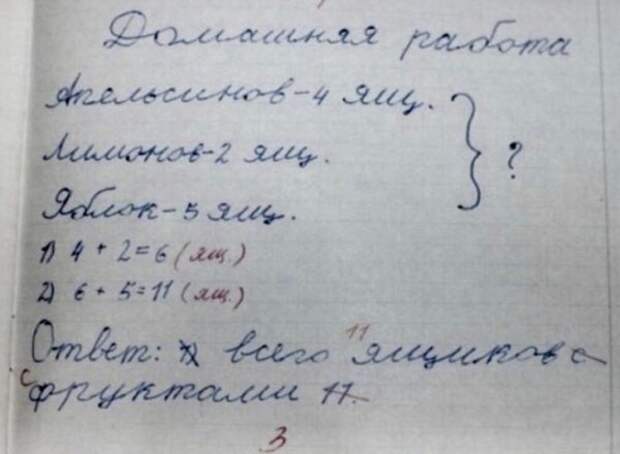 Домашняя работа
Апельсинов-4 ящ.
Лимонов-2 ящ. } ?
Яблок-5 ящ.
1) 4 + 2=6 (ящ.)
2) 6 + 5=11 (ящ.)
Ответ: всего 11 ящиков с
с фруктами 11.
3